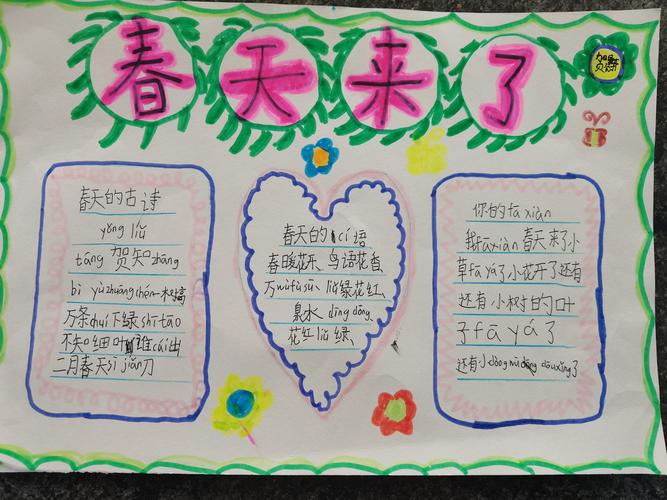 春天来了
春天的古诗
yǒng liǔ
táng 贺知zhāng
bì yùzhuāngchén一树高
万条chuí下绿sī tāo
不知细叶谁cái出
二月春天sì jiǎn刀
春天的cí语
春暖花开、鸟语花香、
万wùfùsū、liǔ绿花红、
泉水dīng dōng、
花红liǔ绿、
你的fa xiàn
我fāxiàn春天来了小
草fā yá了小花开了还有
还有小树的叶
子fā yá了
还有小dòng wù dōuxǐng了